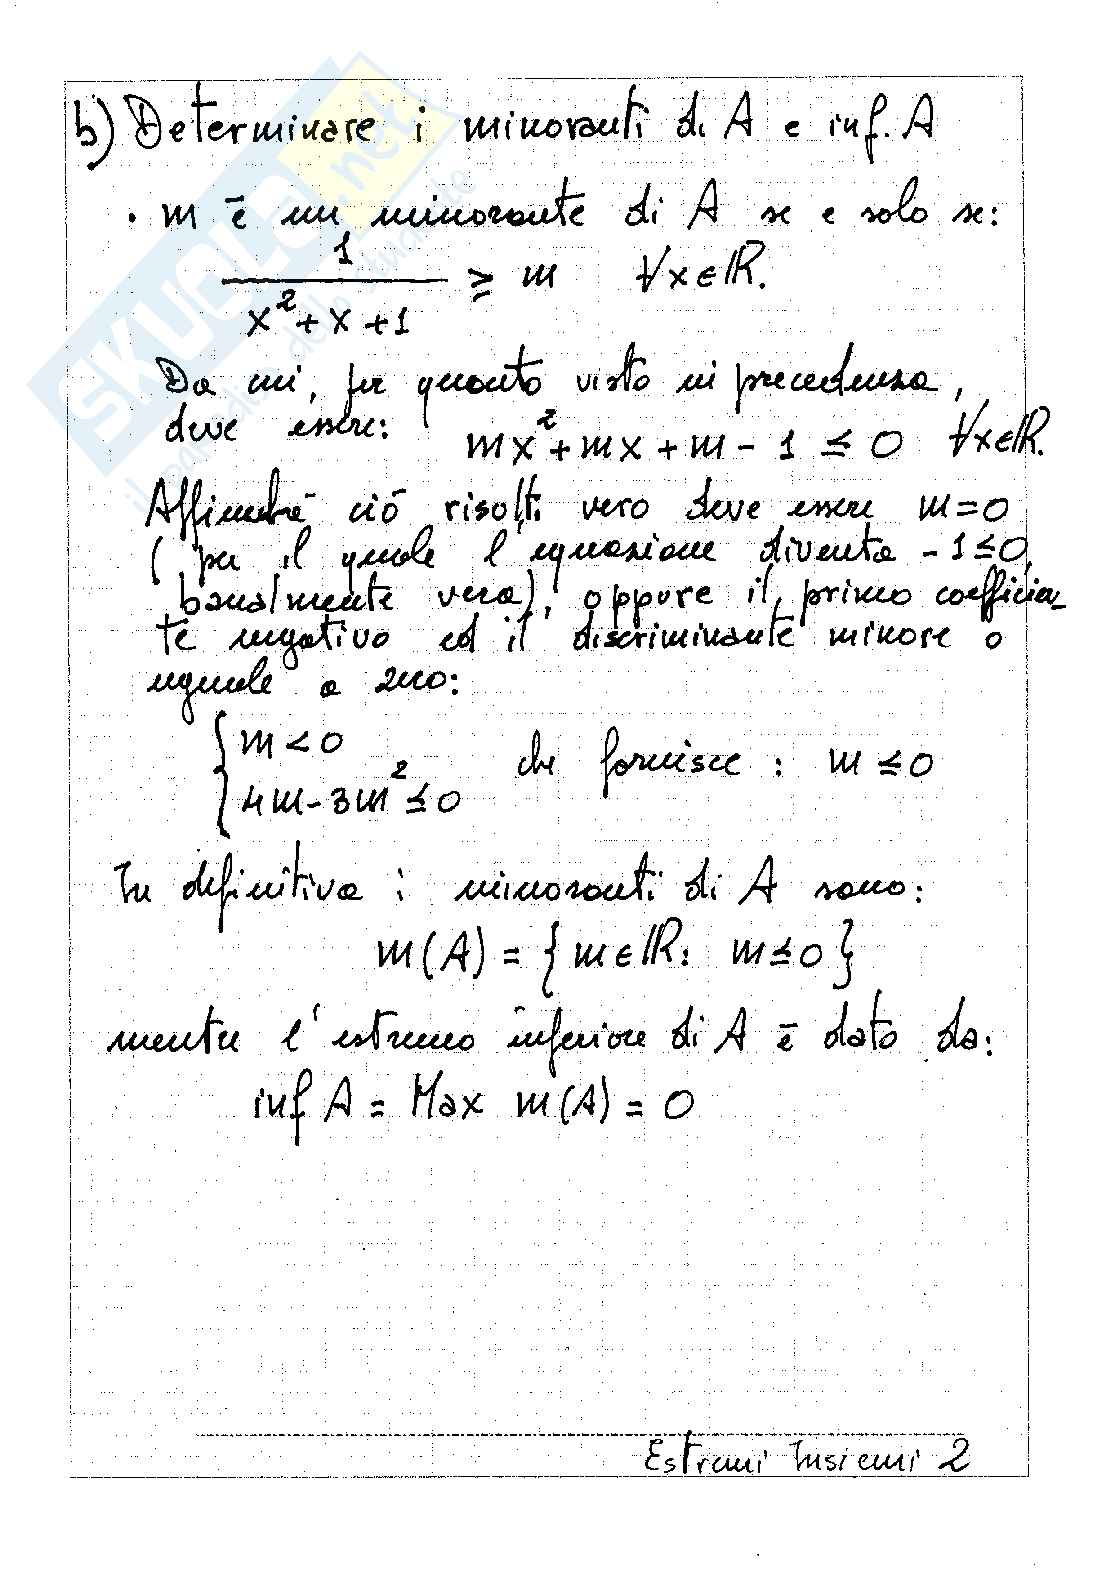 b) Determinare i minoranti di A e inf. A
. m è un minorante di A se e solo se:
1
x²+x+1 ≥ m ∀x∈ℝ.
Da cui, per quanto visto in precedenza,
deve essere: mx²+mx+m-1≤0 ∀x∈ℝ.
Affinché ciò risulti vero deve essere m=0
(per il quale l'equazione diventa -1≤0,
banalmente vera), oppure il primo coefficien_
te negativo ed il discriminante minore o
uguale a zero:
{m<0
4m-3m²≤0 che fornisce: m≤0
In definitiva i minoranti di A sono:
m(A) = {m∈ℝ: m≤0}
mentre l'estremo inferiore di A è dato da:
inf A = Max m(A) = 0
Estremi Insiemi 2
SKUOLA.net
il portale dello studente